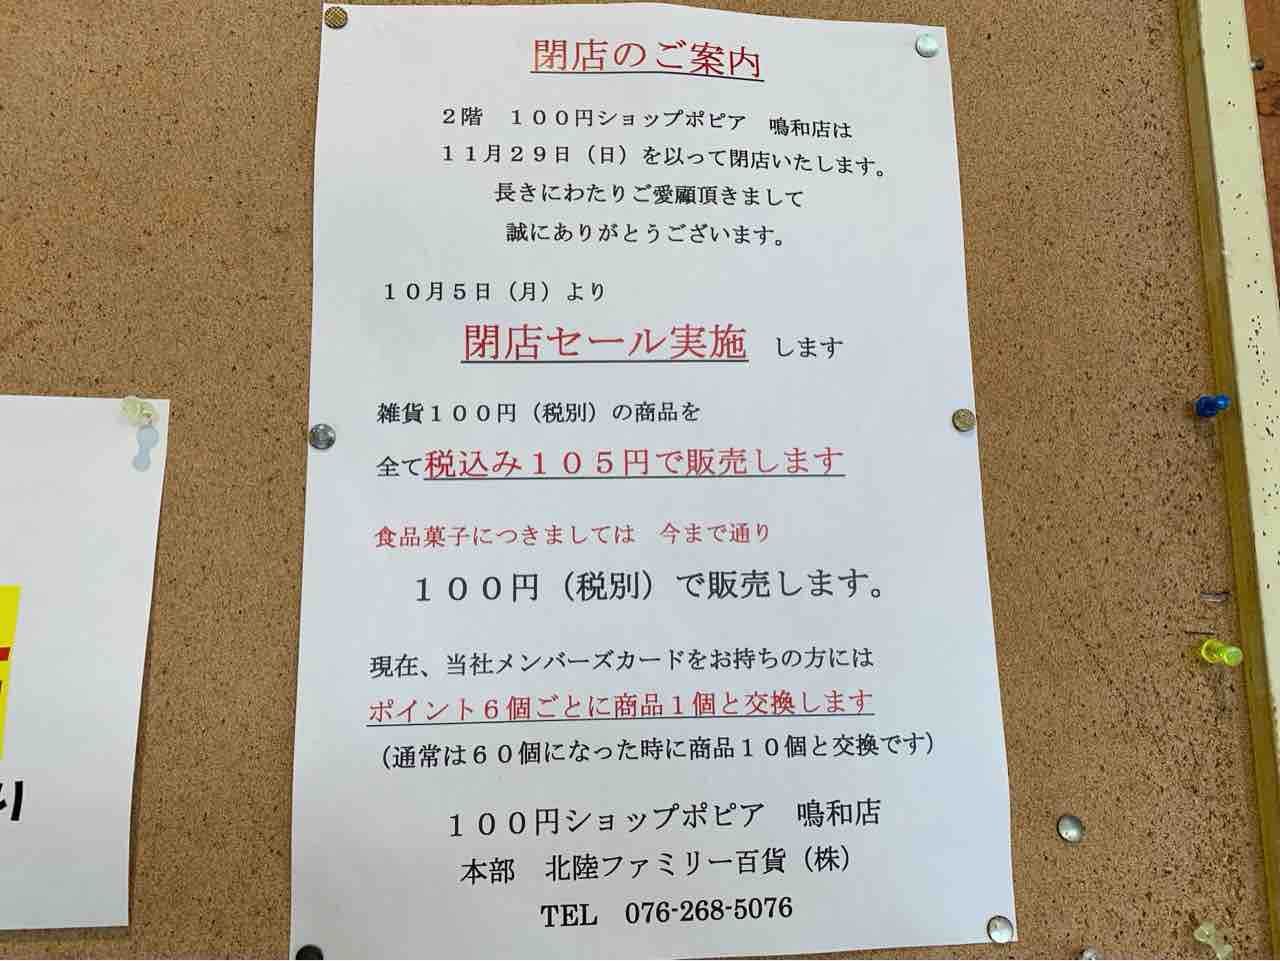 閉店のご案内
２階　１００円ショップポピア　鳴和店は
１１月２９日（日）を以って閉店いたします。
長きにわたりご愛顧頂きまして
誠にありがとうございます。
１０月５日（月）より
閉店セール実施　します
雑貨１００円（税別）の商品を
全て税込み１０５円で販売します
食品菓子につきましては　今まで通り
１００円（税別）で販売します。
現在、当社メンバーズカードをお持ちの方には
ポイント６個ごとに商品１個と交換します
（通常は６０個になった時に商品１０個と交換です）
１００円ショップポピア　鳴和店
本部　北陸ファミリー百貨（株）
TEL　076-268-5076
り